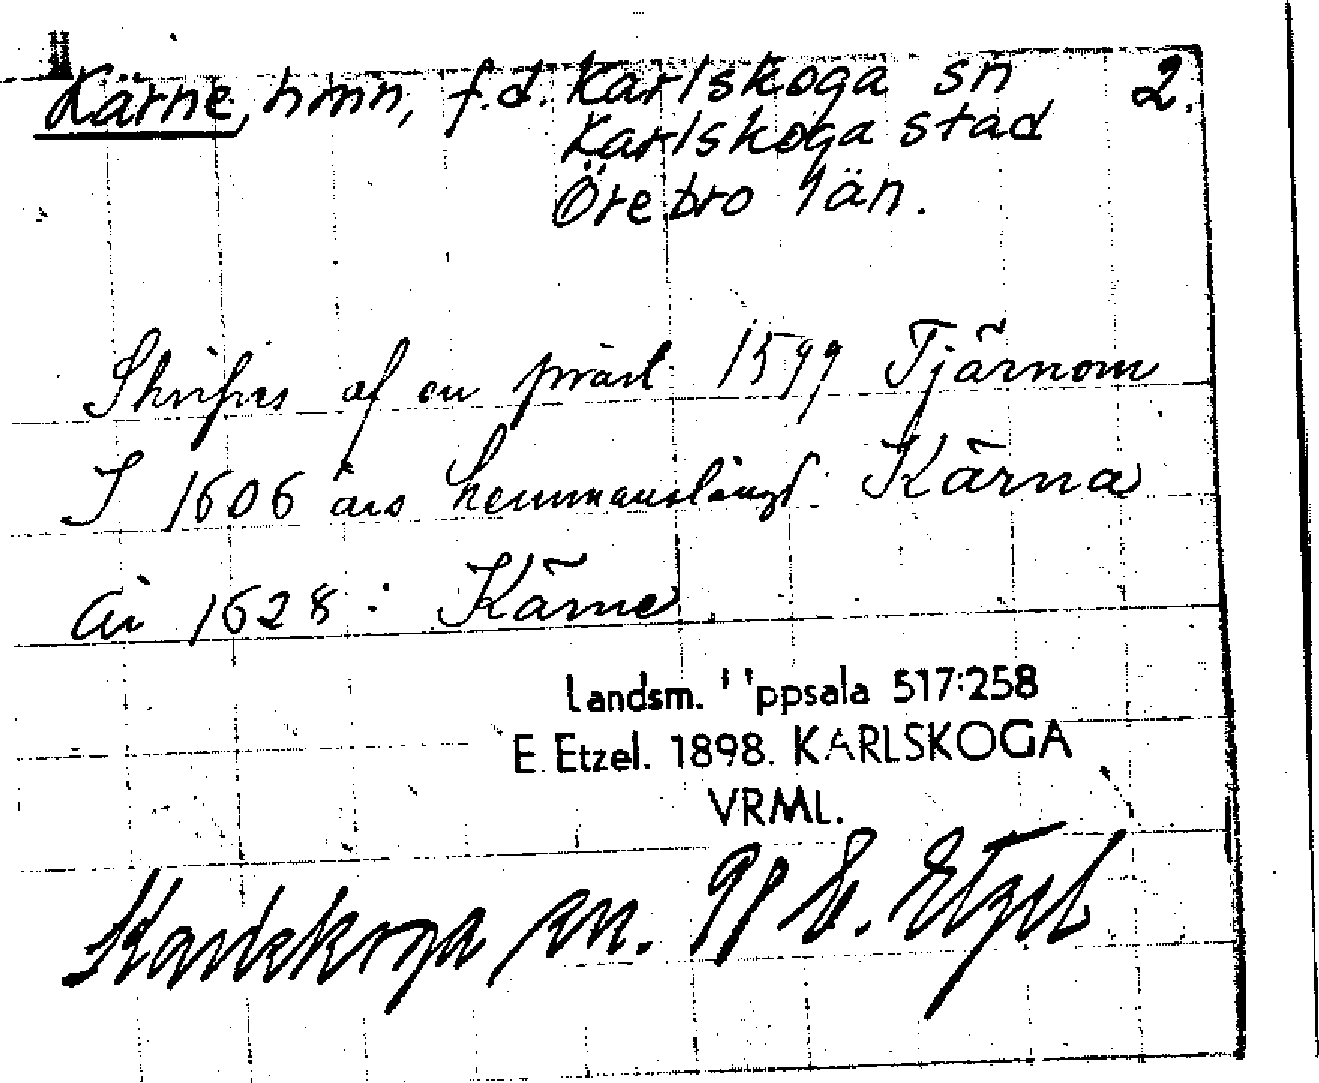 Kärne, hmn, f.d. Karlskoga sn 2.
Karlskoga stad
Örebro län.
Skrifves af en präst 1599 Tjärnom
I 1606 års hemmanslängd Kärna
År 1628: Kärne
Landsm. Uppsala 517:258
E. Etzel. 1898. KARLSKOGA
VRML.
Karlskoga sn. 98 E. Etzel